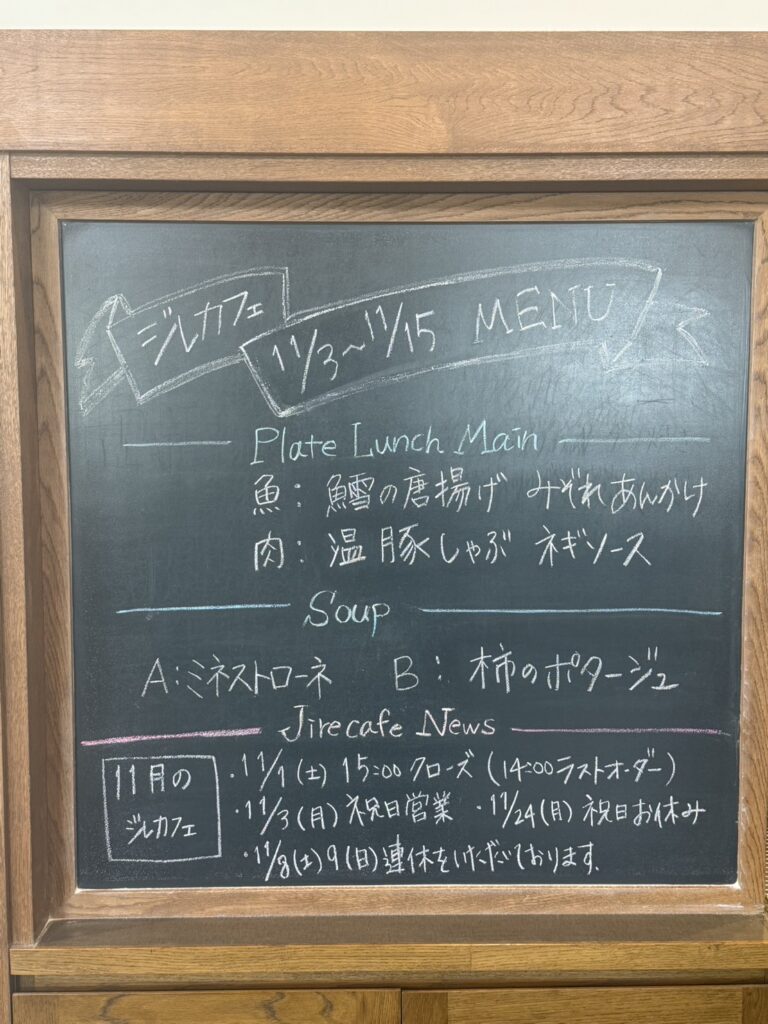 ジルカフェ
11/3〜11/15 MENU
Plate Lunch Main
魚: 鱈の唐揚げ みぞれあんかけ
肉: 温豚しゃぶ ネギソース
Soup
A:ミネストローネ B: 柿のポタージュ
Jirecafe News
11月の
ジルカフェ
・11/1(土) 15:00 クローズ (14:00ラストオーダー)
・11/3(月) 祝日営業 ・11/24(月) 祝日お休み
・11/8(土)9(日)連休をいただいております。